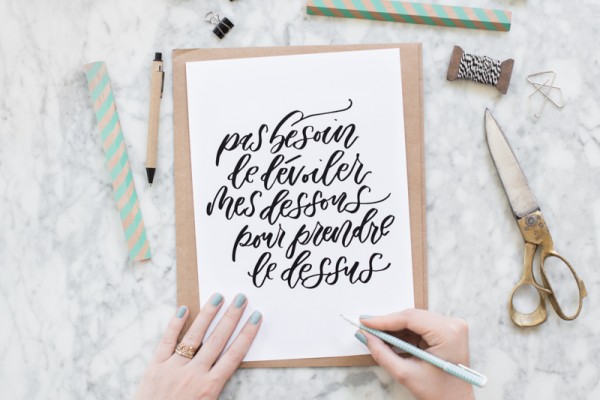 pas besoin
de dévoiler
mes dessous
pour prendre
le dessus